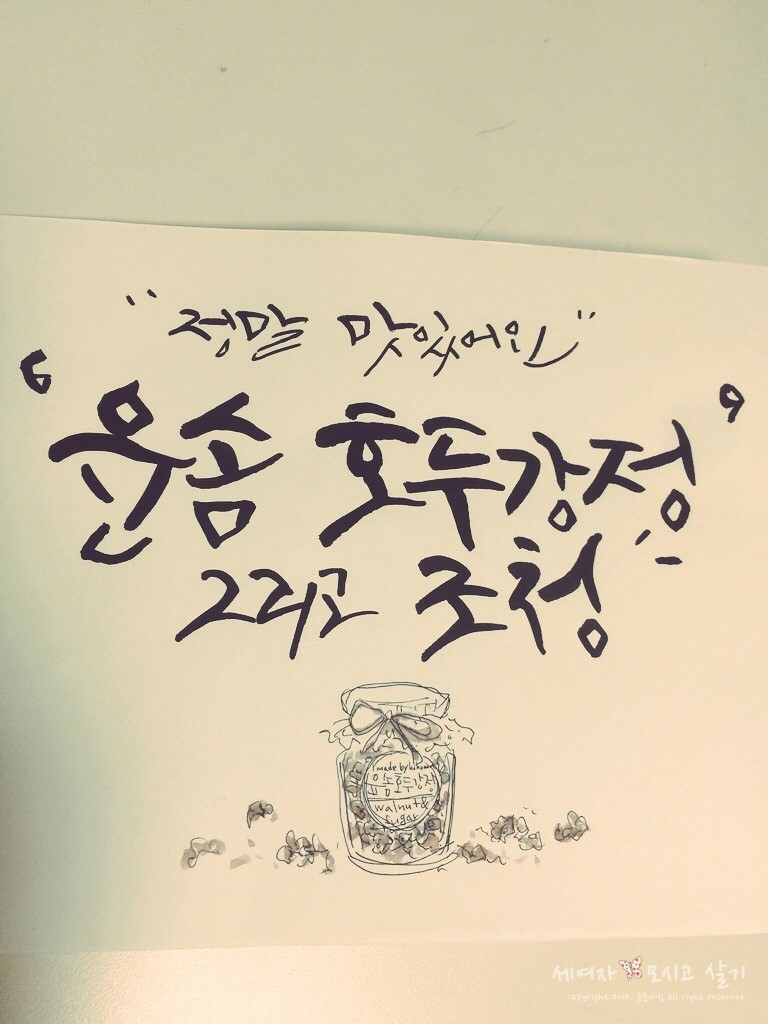 "정말 맛있어요!"
'윤솜 호두강정'
그리고 조청
made by
윤솜호두강정
walnut &
sugar
세여자 모시고 살기
copyright 2014. all right reserved.